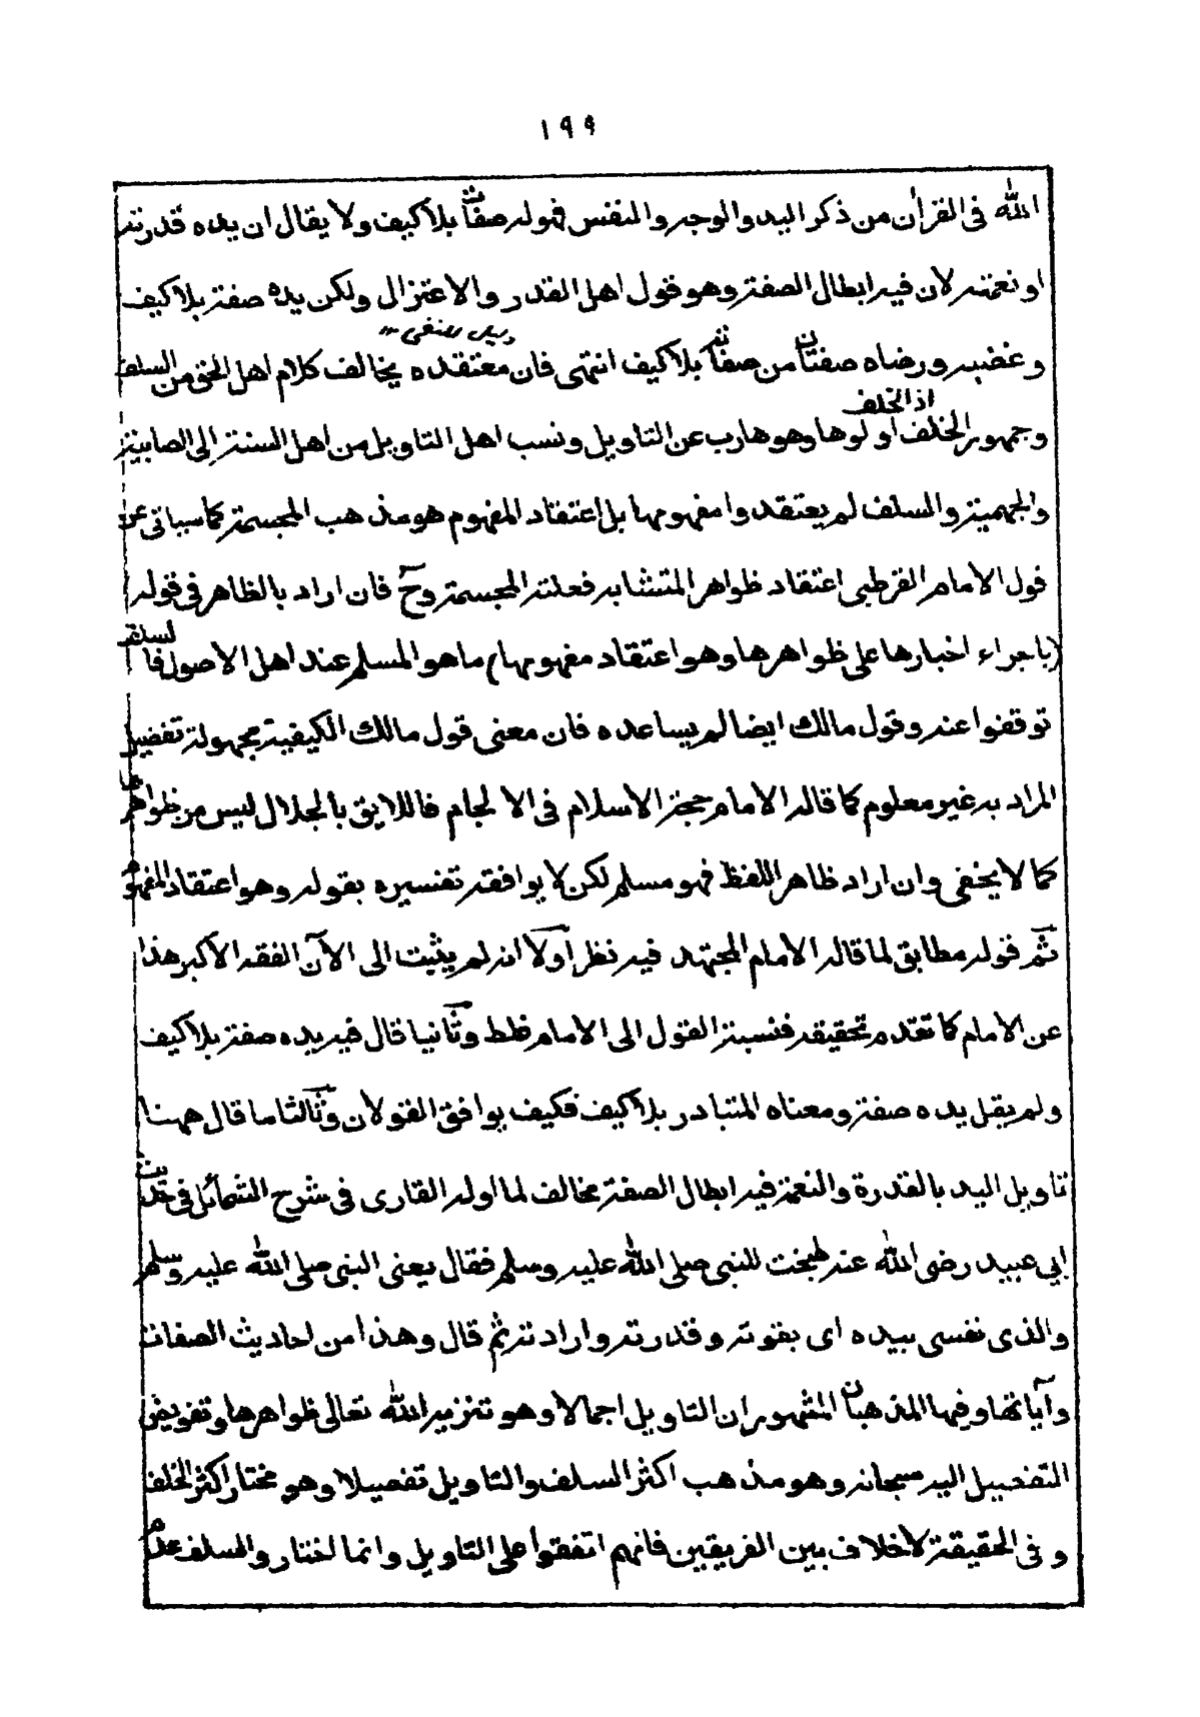 ١٩٩
الله فى القرأن من ذكر اليد والوجه والنفس فهو له صفات بلا كيف ولا يقال ان يده قدرته
او نعمته لان فيه ابطال الصفة وهو قول اهل القدر والاعتزال ولكن يده صفة بلا كيف
وغضبه ورضاه صفتان من صفاته بلا كيف انتهى فان معتقده يخالف كلام اهل الحق من السلف
اذ الخلف
وجمهور الخلف اولوها وهو هارب عن التاويل ونسب اهل التاويل من اهل السنة الى الصابية
والجهمية والسلف لم يعتقدوا مفهومها بل اعتقاد المفهوم هو مذهب المجسمة كما سياتى عن
قول الامام القرطبى اعتقاد ظواهر المتشابه فعلته المجسمة وح فان اراد بالظاهر فى قوله
(باجراء اخبارها على ظواهرها وهو اعتقاد مفهومها) ما هو المسلم عند اهل الاصول فالسلف
توقفوا عنه وقول مالك ايضا لم يساعده فان معنى قول مالك الكيفية مجهولة تفضيل
المراد به غير معلوم كما قاله الامام حجة الاسلام فى الالجام فاللايق بالجلال ليس من ظواهرها
كما لا يخفى وان اراد ظاهر اللفظ فهو مسلم لكن لا يوافقه تفسيره بقوله وهو اعتقاد المفهوم
ثم قوله مطابق لما قاله الامام المجتهد فيه نظر اولا انه لم يثبت الى الآن الفقه الاكبر هذا
عن الامام كما تقدم تحقيقه فنسبة القول الى الامام غلط وثانيا قال فيه يده صفة بلا كيف
ولم يقل يده صفة ومعناه المتبادر بلا كيف فكيف يوافق القولان وثالثا ما قال ههنا
تاويل اليد بالقدرة والنعمة فيه ابطال الصفة مخالف لما اوله القارى فى شرح الشمائل فى حديث
ابي عبيد رضى الله عنه طبخت للنبى صلى الله عليه وسلم فقال يعنى النبى صلى الله عليه وسلم
والذى نفسى بيده اى بقوته وقدرته وارادته ثم قال وهذا من احاديث الصفات
وآياتها وفيها المذهبان المشهوران التاويل اجمالا وهو تنزيه الله تعالى ظواهرها وتفويض
التفصيل اليه سبحانه وهو مذهب اكثر السلف والتاويل تفصيلا وهو مختار اكثر الخلف
وفى الحقيقة لا خلاف بين الفريقين فانهم اتفقوا على التاويل وانما اختار والسلف عدم